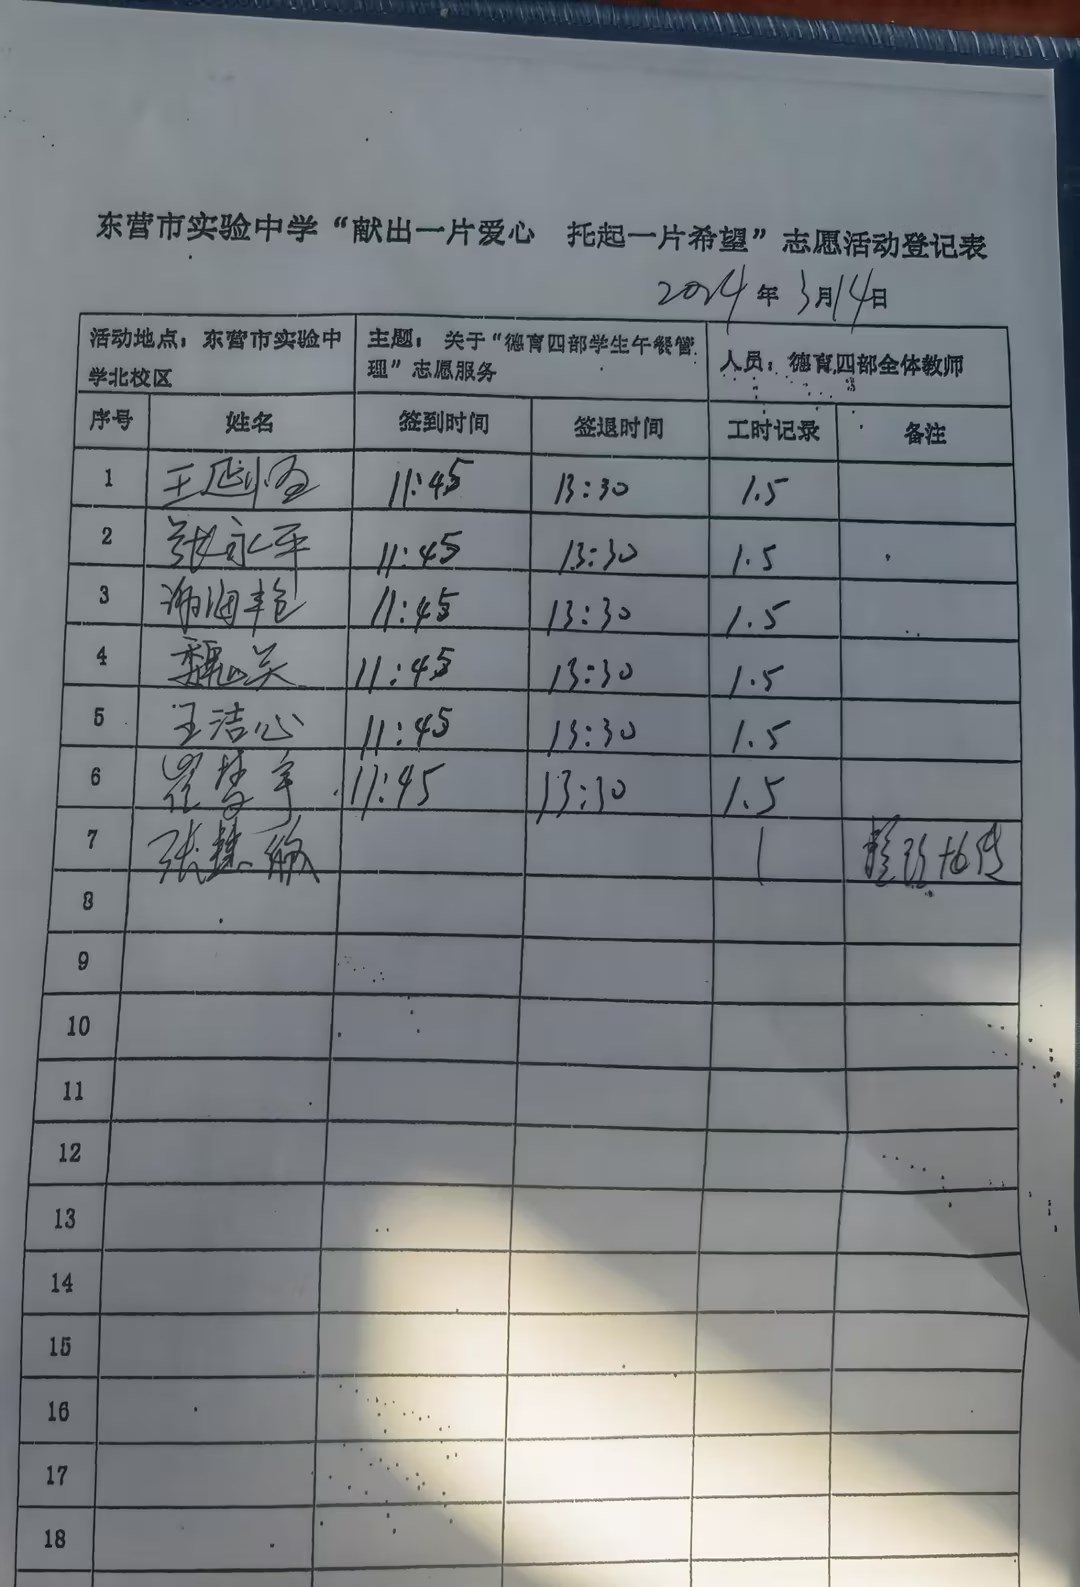 东营市实验中学“献出一片爱心 托起一片希望”志愿活动登记表
2024年3月14日
活动地点：东营市实验中学北校区 主题：关于“德育四部学生午餐管理”志愿服务 人员：德育四部全体教师
序号 姓名 签到时间 签退时间 工时记录 备注
1 王延 11:45 13:30 1.5
2 张永平 11:45 13:30 1.5
3 谢海艳 11:45 13:30 1.5
4 魏 11:45 13:30 1.5
5 王洁心 11:45 13:30 1.5
6 崔梦宇 11:45 13:30 1.5
7 张 敏 1
8
9
10
11
12
13
14
15
16
17
18